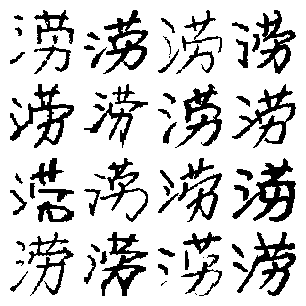 涝涝涝涝
涝涝涝涝
涝涝涝涝
涝涝涝涝